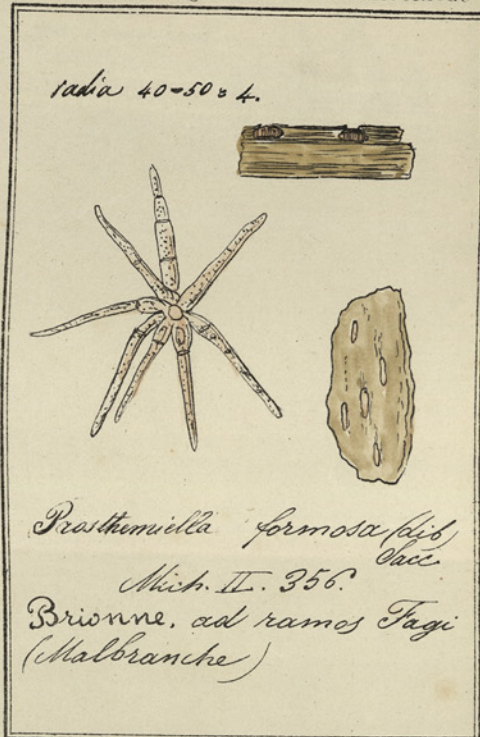 radia 40-50 = 4.
Prosthemiella formosa (Lib)
Sacc
Mich. II. 356.
Brionne. ad ramos Fagi
(Malbranche)